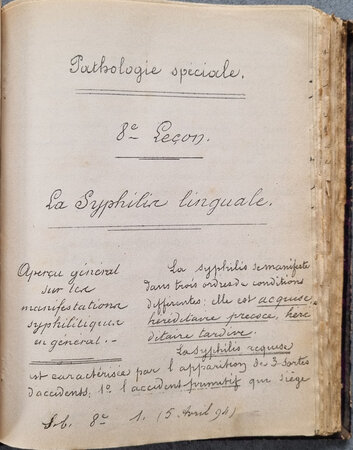 Pathologie spéciale.
8e Leçon.
La Syphilis linguale.
Aperçu général
sur les
manifestations
syphilitiques
en général.
La syphilis se manifeste
dans trois ordres de conditions
differentes : elle est acquise,
héréditaire précoce, héré
ditaire tardive.
La syphilis acquise
est caractérisée par l'apparition de 3 sortes
d'accidents, 1° l'accident primitif qui siège
8e 1. (5 Avril 94)